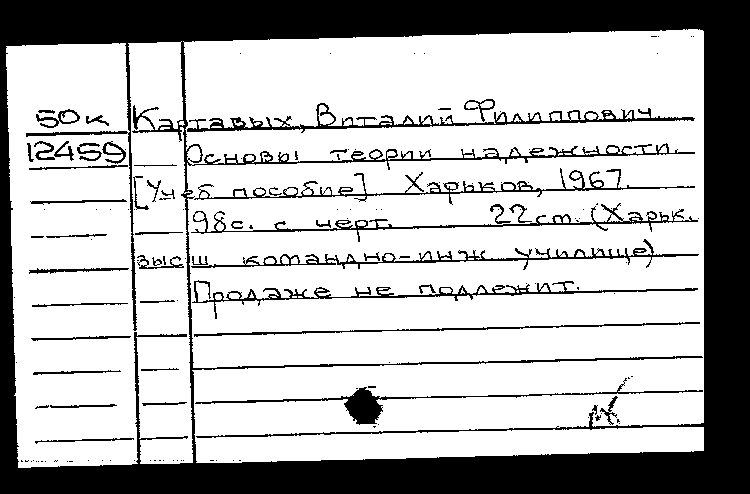 50к Картавых, Виталий Филиппович.
12459 Основы теории надежности.
[Учеб пособие] Харьков, 1967.
98с. с черт. 22см. (Харьк.
высш. командно-инж училище)
Продаже не подлежит.